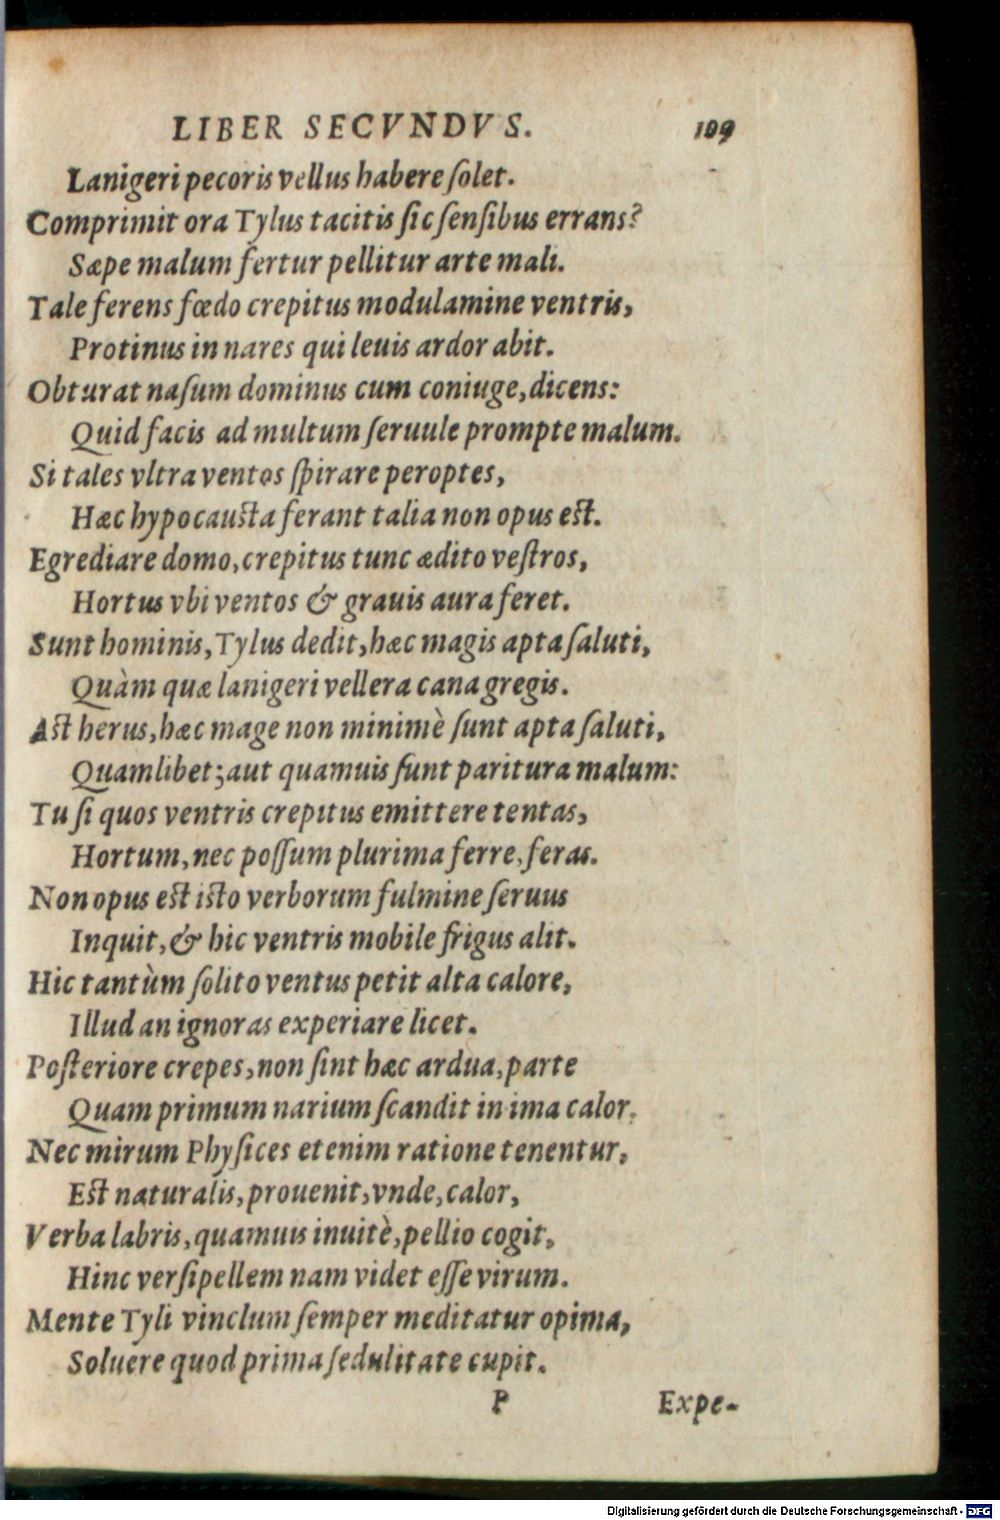 LIBER SECVNDVS. 109
Lanigeri pecoris vellus habere ſolet.
Comprimit ora Tylus tacitis ſic ſenſibus errans?
Sæpe malum fertur pellitur arte mali.
Tale ferens fœdo crepitus modulamine ventris,
Protinus in nares qui leuis ardor abit.
Obturat naſum dominus cum coniuge, dicens:
Quid facis ad multum ſeruule prompte malum.
Si tales vltra ventos ſpirare peroptes,
Hæc hypocauſta ferant talia non opus eſt.
Egrediare domo, crepitus tunc ædito veſtros,
Hortus vbi ventos & grauis aura feret.
Sunt hominis, Tylus dedit, hæc magis apta ſaluti,
Quàm quæ lanigeri vellera cana gregis.
Aſt herus, hæc mage non minimè ſunt apta ſaluti,
Quamlibet; aut quamuis ſunt paritura malum:
Tu ſi quos ventris crepitus emittere tentas,
Hortum, nec poſſum plurima ferre, feras.
Non opus eſt iſto verborum fulmine ſeruus
Inquit, & hic ventris mobile frigus alit.
Hic tantùm ſolito ventus petit alta calore,
Illud an ignoras experiare licet.
Poſteriore crepes, non ſint hæc ardua, parte
Quam primum narium ſcandit in ima calor.
Nec mirum Phyſices etenim ratione tenentur,
Eſt naturalis, prouenit, vnde, calor,
Verba labris, quamuis inuitè, pellio cogit,
Hinc verſipellem nam videt eſſe virum.
Mente Tyli vinclum ſemper meditatur opima,
Soluere quod prima ſedulitate cupit.
P Expe-
Digitalisierung gefördert durch die Deutsche Forschungsgemeinschaft - DFG